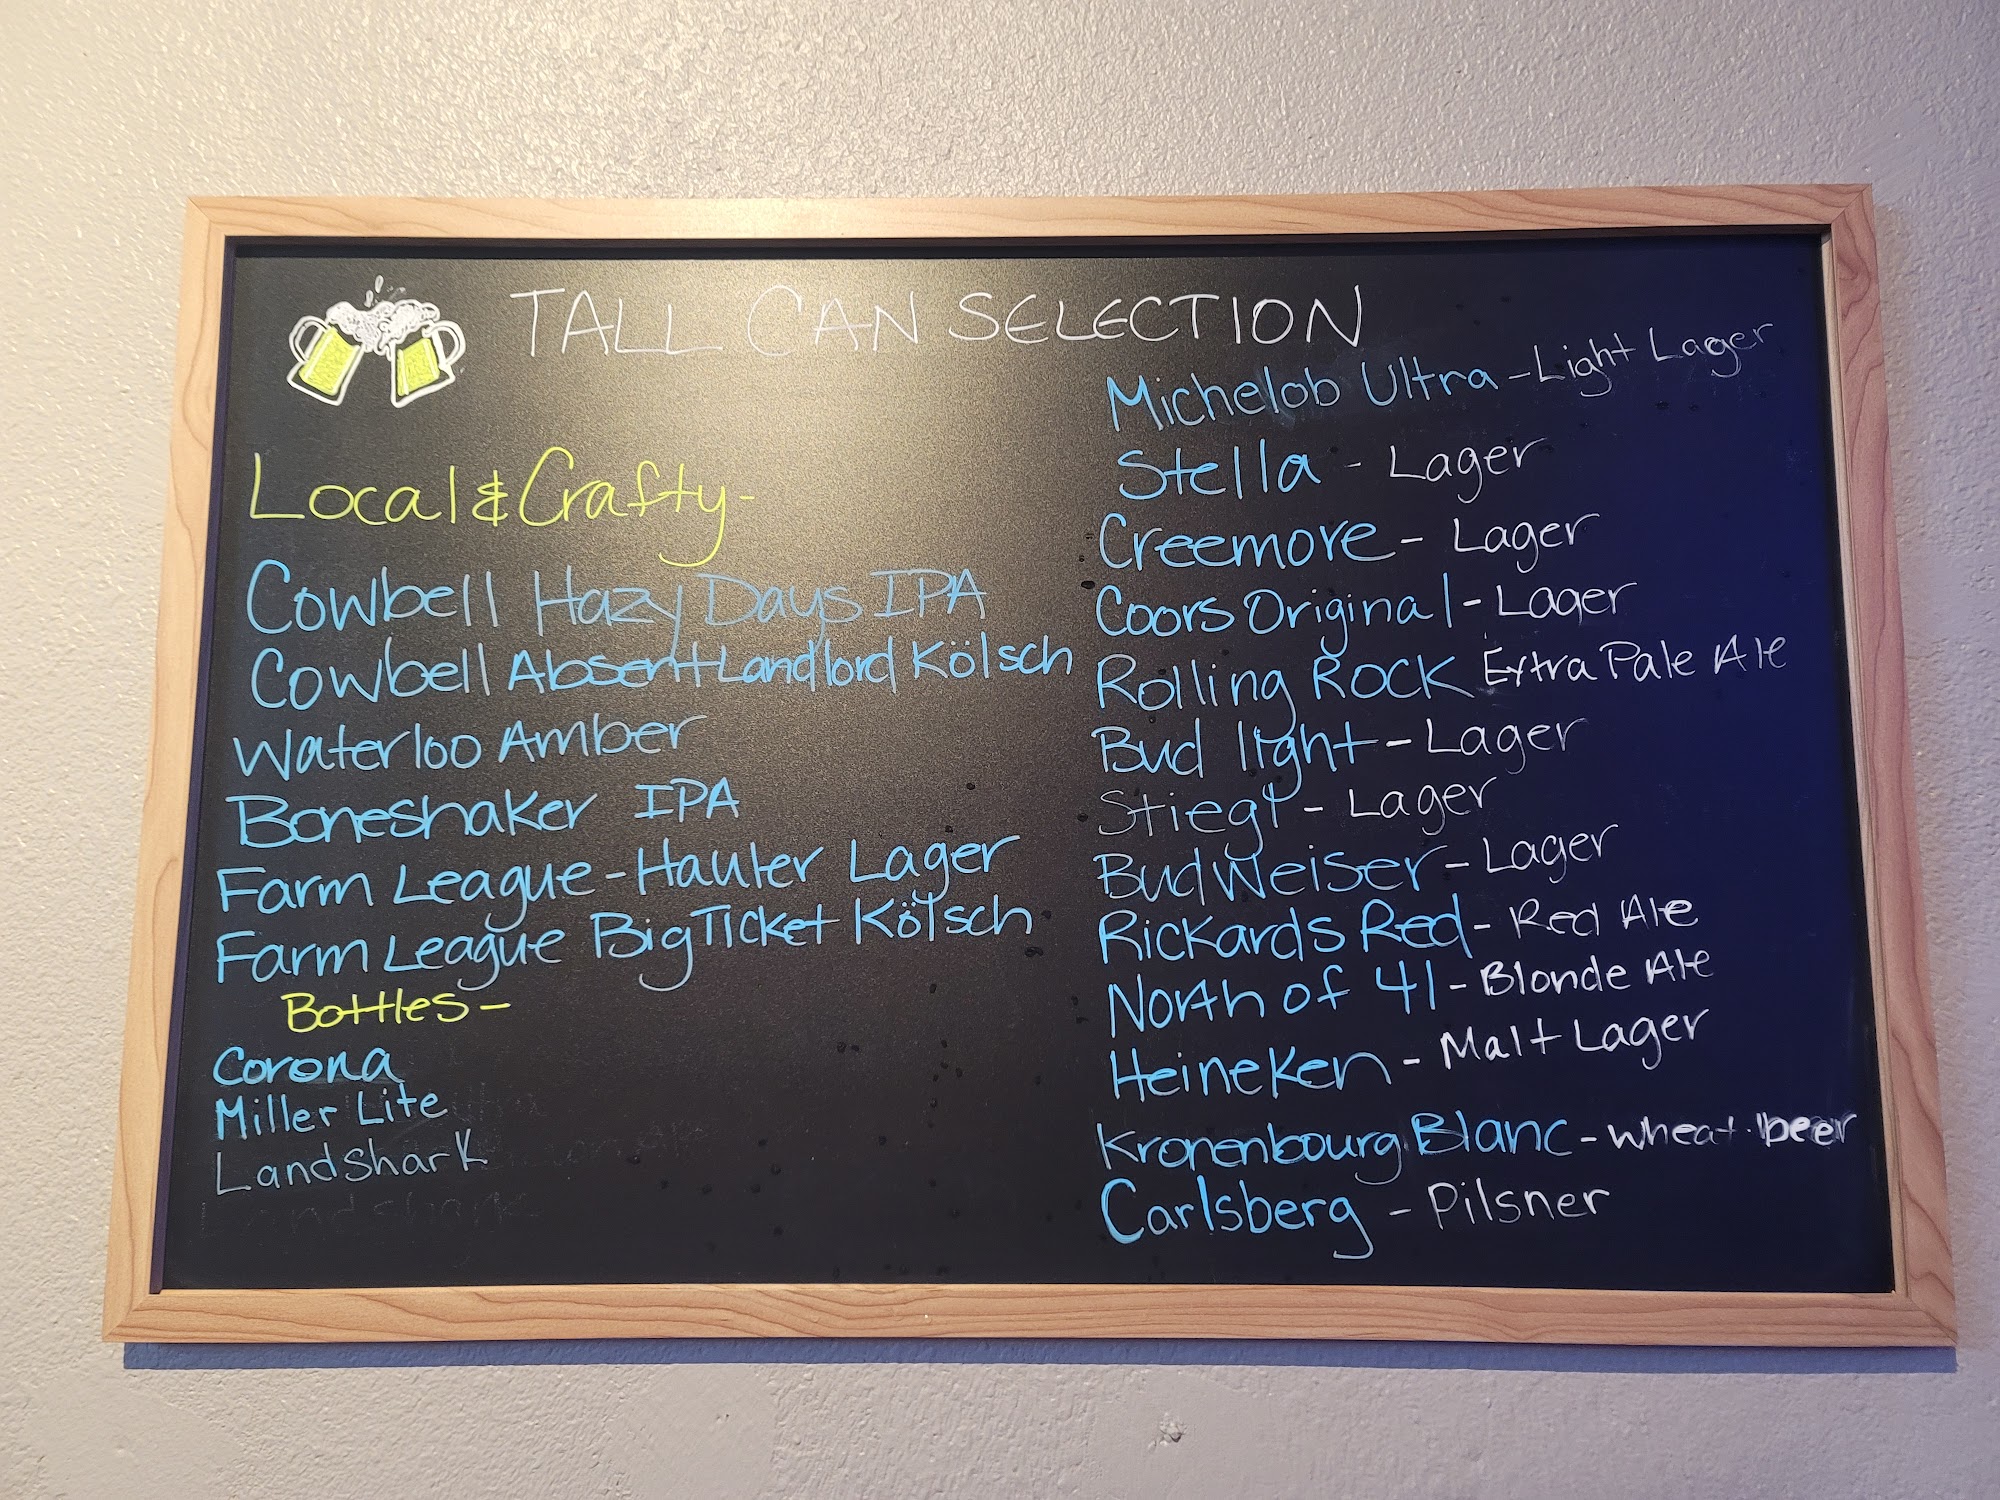 TALL CAN SELECTION
Local & Crafty -
Cowbell Hazy Days IPA
Cowbell Absent Landlord Kölsch
Waterloo Amber
Boneshaker IPA
Farm League - Hauler Lager
Farm League Big Ticket Kölsch
Bottles -
Corona
Miller Lite
Landshark
Landshark
Michelob Ultra - Light Lager
Stella - Lager
Creemore - Lager
Coors Original - Lager
Rolling Rock Extra Pale Ale
Bud light - Lager
Stiegl - Lager
Budweiser - Lager
Rickards Red - Red Ale
North of 41 - Blonde Ale
Heineken - Malt Lager
Kronenbourg Blanc - wheat beer
Carlsberg - Pilsner